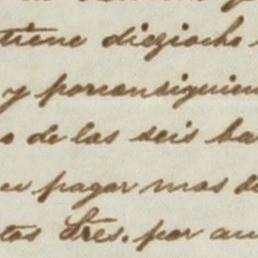 tiene dieziocho
y porconsiguien
o de las seis ba
pagar mas d
tos Sres. por au